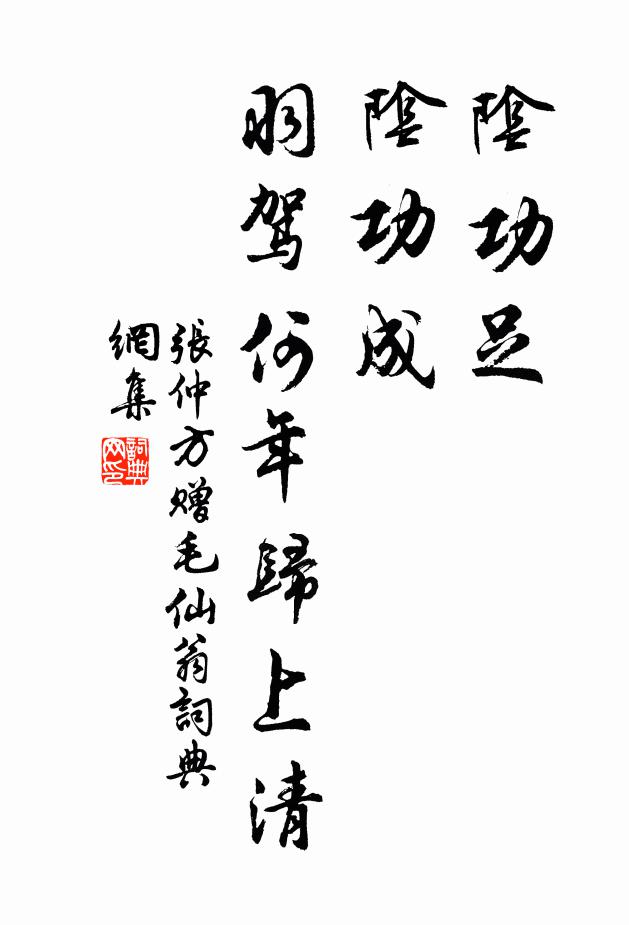 陰功足
陰功成
羽駕何年歸上清
張仲方贈毛仙翁詞典
網集
詞典
网印